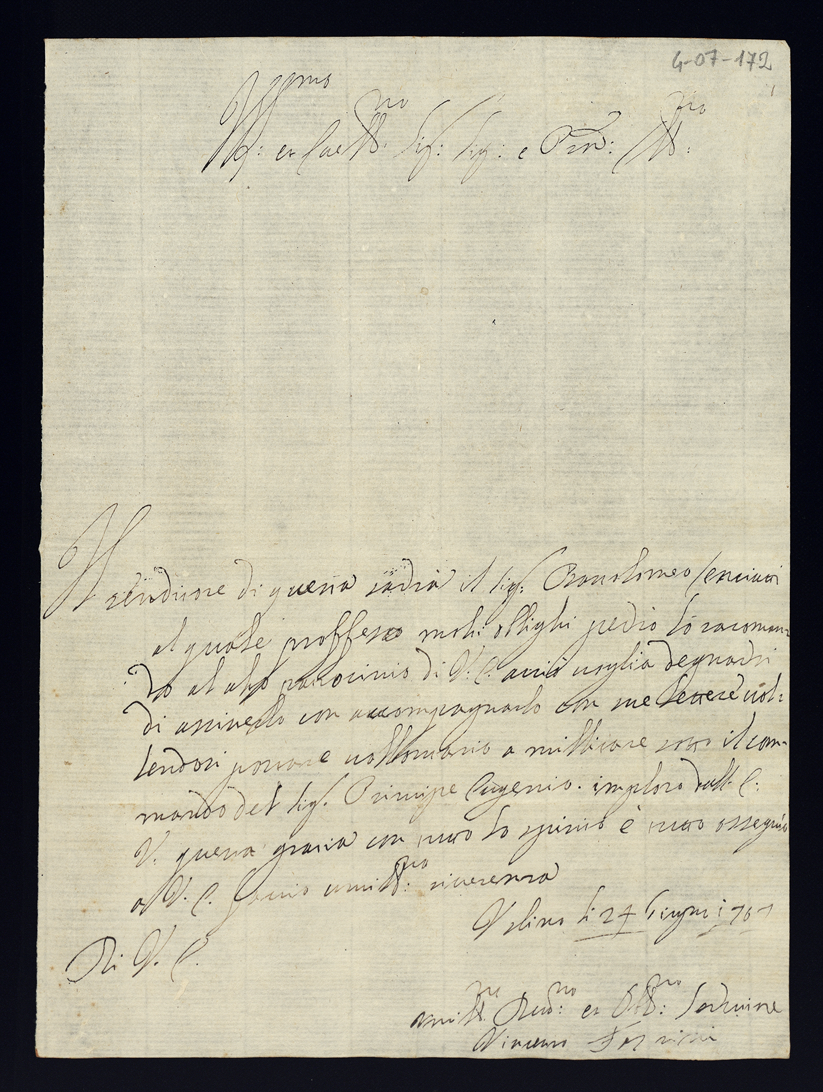 4-07-172
Ill.mo
et Ecc.mo Sig: Sig: e Pron: Col.mo
di questa il Sig. Bartolomeo
al quale professo molti oblighi perciò lo racoman-
do al alto patrocinio di V. E. acciò voglia degnarsi
di assisterlo con accompagnarlo con sue lettere vol-
lendosi portare vollontario a millitare sotto il com-
mando del Sig. Principe Eugenio. imploro dall. E.
V. questa gracia con tutto lo spirito è tutto ossequio
a V. E. faccio umil.ma riverenza
li 24 Giugno 170
Di V. E.
umil.mo Dev.mo et Obl.mo Servitore
Vincenzo